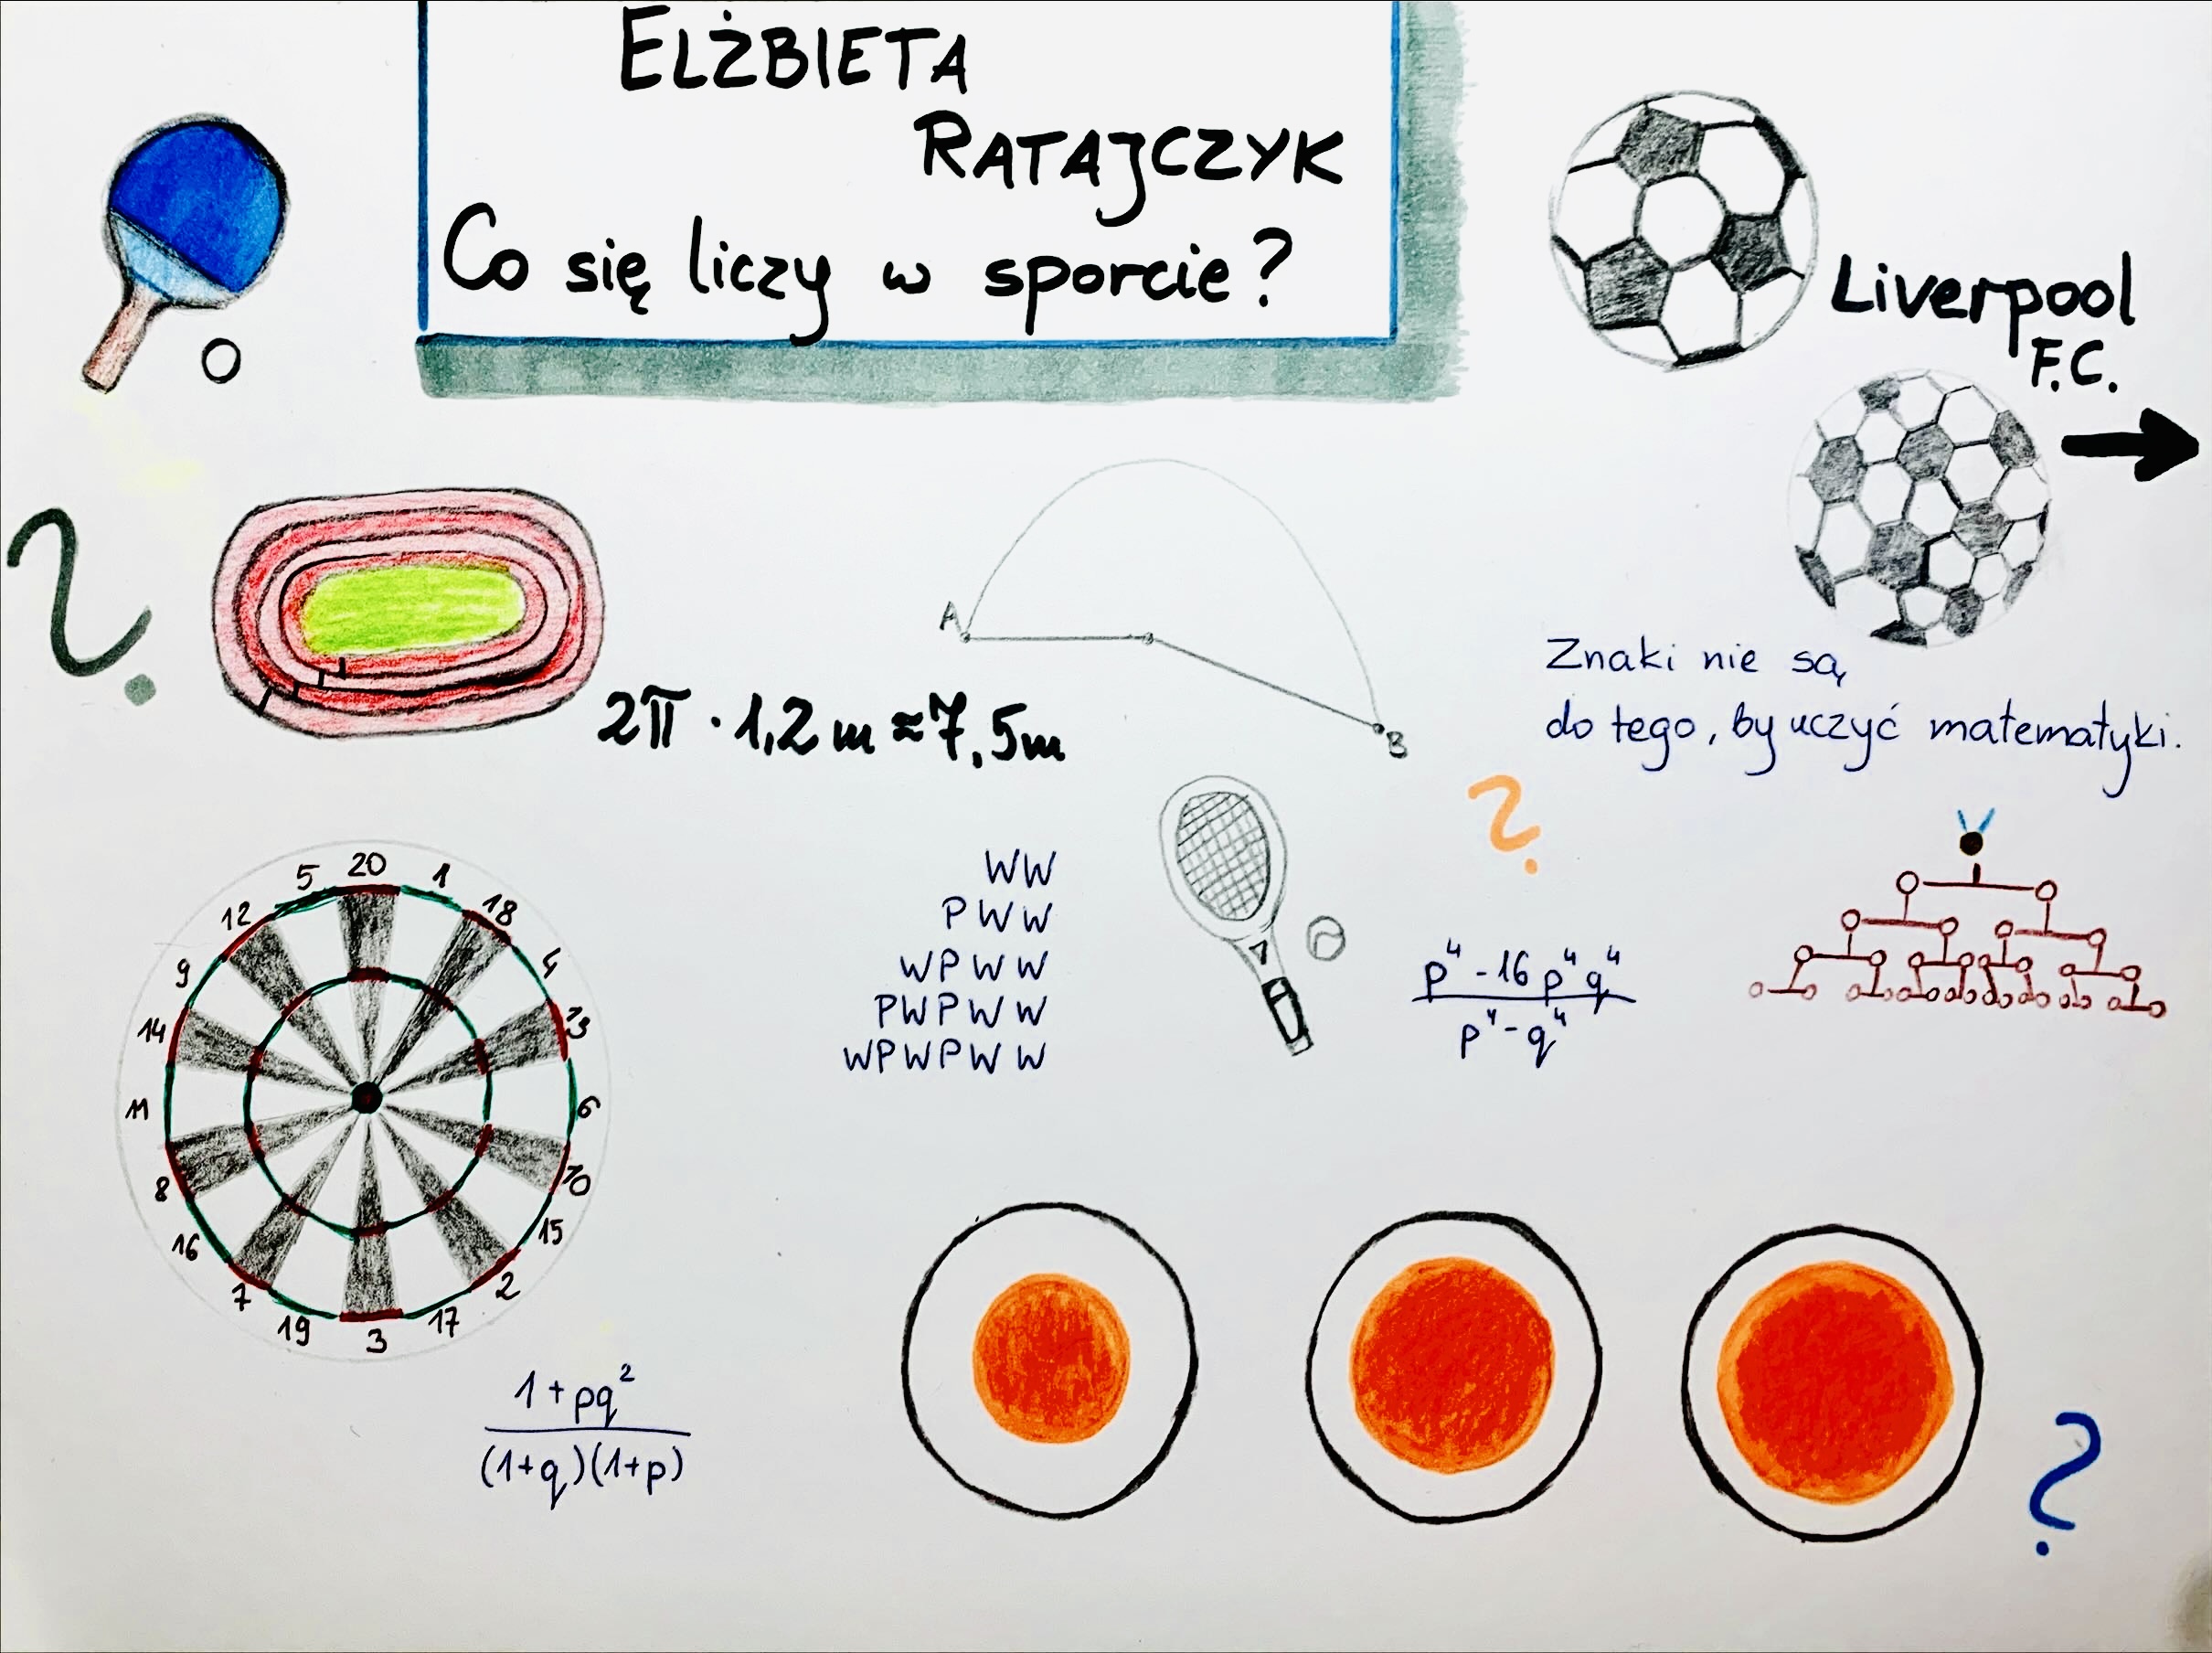 ELŻBIETA
RATAJCZYK
Co się liczy w sporcie?
Liverpool
F.C.
?
A
B
2π · 1,2 m ≈ 7,5m
Znaki nie są
do tego, by uczyć matematyki.
?
WW
PWW
WPWW
PWPWW
WPWPWW
p⁴ - 16 p⁴q⁴
p⁴ - q⁴
20
1
18
4
13
6
10
15
2
17
3
19
7
16
8
11
14
9
12
5
1 + pq²
(1+q)(1+p)
?